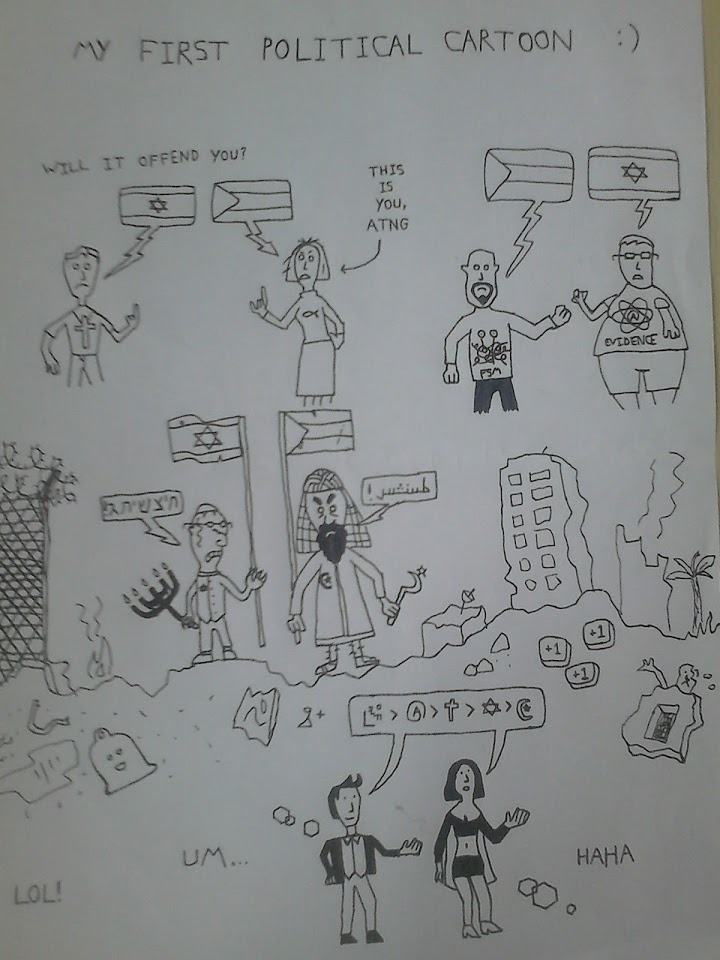 MY FIRST POLITICAL CARTOON :)
WILL IT OFFEND YOU?
THIS
IS
YOU,
ATNG
FSM
EVIDENCE
+1
+1
+1
UM...
HAHA
LOL!